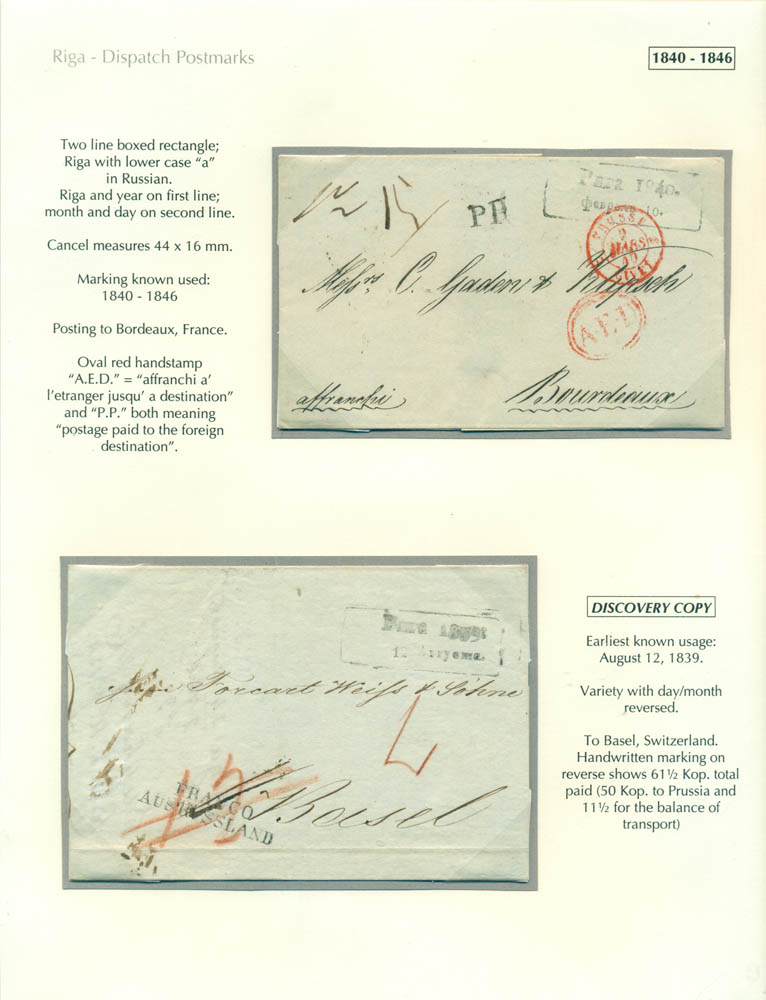 Riga - Dispatch Postmarks
1840 - 1846
Two line boxed rectangle;
Riga with lower case “a”
in Russian.
Riga and year on first line;
month and day on second line.
Cancel measures 44 x 16 mm.
Marking known used:
1840 - 1846
Posting to Bordeaux, France.
Oval red handstamp
“A.E.D.” = “affranchi a’
l’etranger jusqu’ a destination”
and “P.P.” both meaning
“postage paid to the foreign
destination”.
P.P.
Рига 1840.
10.
2
MARS
40
Messrs. C. Gaden &
A.E.D.
affranchi
Bourdeaux
DISCOVERY COPY
Earliest known usage:
August 12, 1839.
Variety with day/month
reversed.
To Basel, Switzerland.
Handwritten marking on
reverse shows 61½ Kop. total
paid (50 Kop. to Prussia and
11½ for the balance of
transport)
Рига 1839.
12 Августа.
Forcart Weiss & Söhne
FRANCO
AUS RUSSLAND
Basel